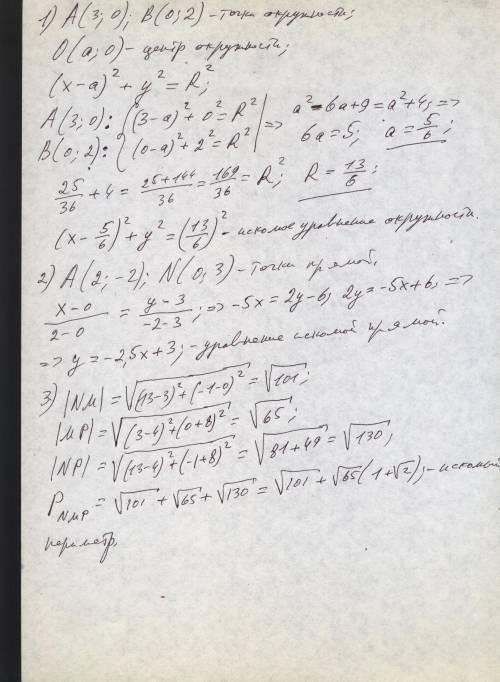 1) A(3; 0); B(0; 2) - точки окружности;
O(a; 0) - центр окружности;
(x-a)² + y² = R²;
A(3; 0): { (3-a)² + 0² = R² | => a² - 6a + 9 = a² + 4; =>
B(0; 2): { (0-a)² + 2² = R² | 6a = 5; a = 5/6;
25/36 + 4 = (25+144)/36 = 169/36 = R²; R = 13/6;
(x - 5/6)² + y² = (13/6)² - искомое уравнение окружности.
2) A(2; -2); N(0; 3) - точки прямой,
(x-0)/(2-0) = (y-3)/(-2-3); => -5x = 2y-6; 2y = -5x+6, =>
=> y = -2,5x+3; - уравнение искомой прямой.
3) |NM| = √((13-3)² + (-1-0)²) = √101;
|MP| = √((3-4)² + (0+8)²) = √65;
|NP| = √((13-4)² + (-1+8)²) = √(81+49) = √130,
P_NMP = √101 + √65 + √130 = √101 + √65(1+√2); - искомый
периметр,